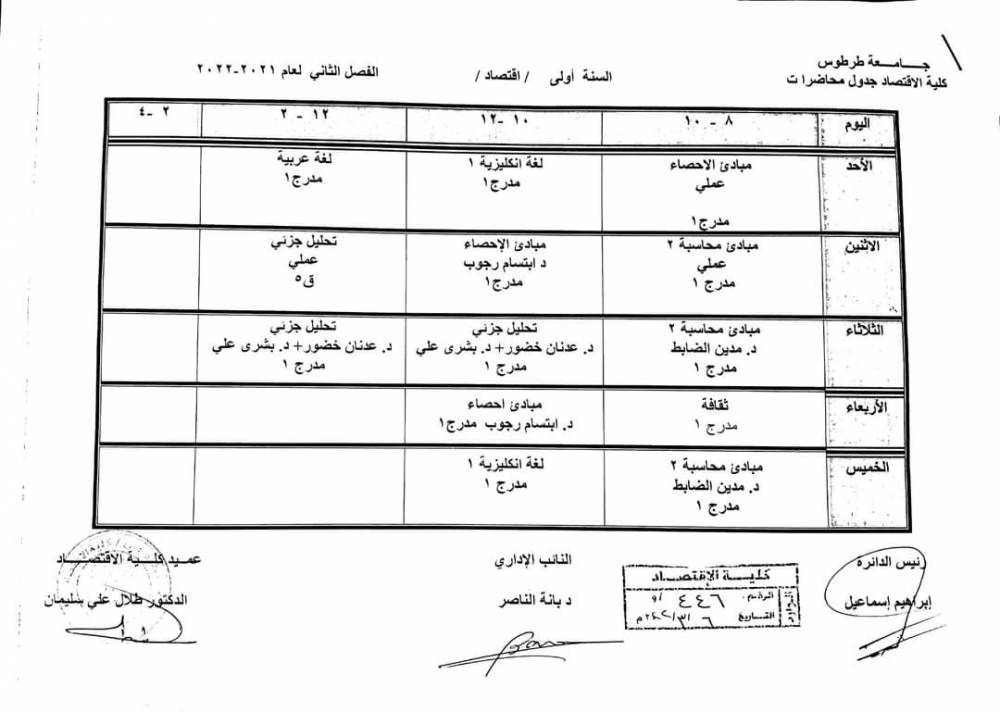 جـــامـــعة طرطوس
كلية الاقتصاد جدول محاضرات
السنة أولى / اقتصاد /
الفصل الثاني لعام ٢٠٢١-٢٠٢٢
اليوم ٨ - ١٠ ١٠ -١٢ ١٢ - ٢ ٢ -٤
الأحد مبادئ الاحصاء لغة انكليزية ١ لغة عربية
عملي مدرج١ مدرج١
مدرج١
الاثنين مبادئ محاسبة ٢ مبادئ الإحصاء تحليل جزئي
عملي د ابتسام رجوب عملي
مدرج ١ مدرج١ ق٥
الثلاثاء مبادئ محاسبة ٢ تحليل جزئي تحليل جزئي
د. مدين الضابط د. عدنان خضور+ د. بشرى علي د. عدنان خضور+ د. بشرى علي
مدرج ١ مدرج ١ مدرج ١
الأربعاء ثقافة مبادئ احصاء
مدرج ١ د. ابتسام رجوب مدرج١
الخميس مبادئ محاسبة ٢ لغة انكليزية ١
د. مدين الضابط مدرج ١
مدرج ١
رئيس الدائرة النائب الإداري عميد كلية الاقتصـــاد
إبراهيم إسماعيل د بانة الناصر الدكتور طلال علي سليمان
كليـــة الإقتصـــاد
الرقم ٤٤٦
التاريخ